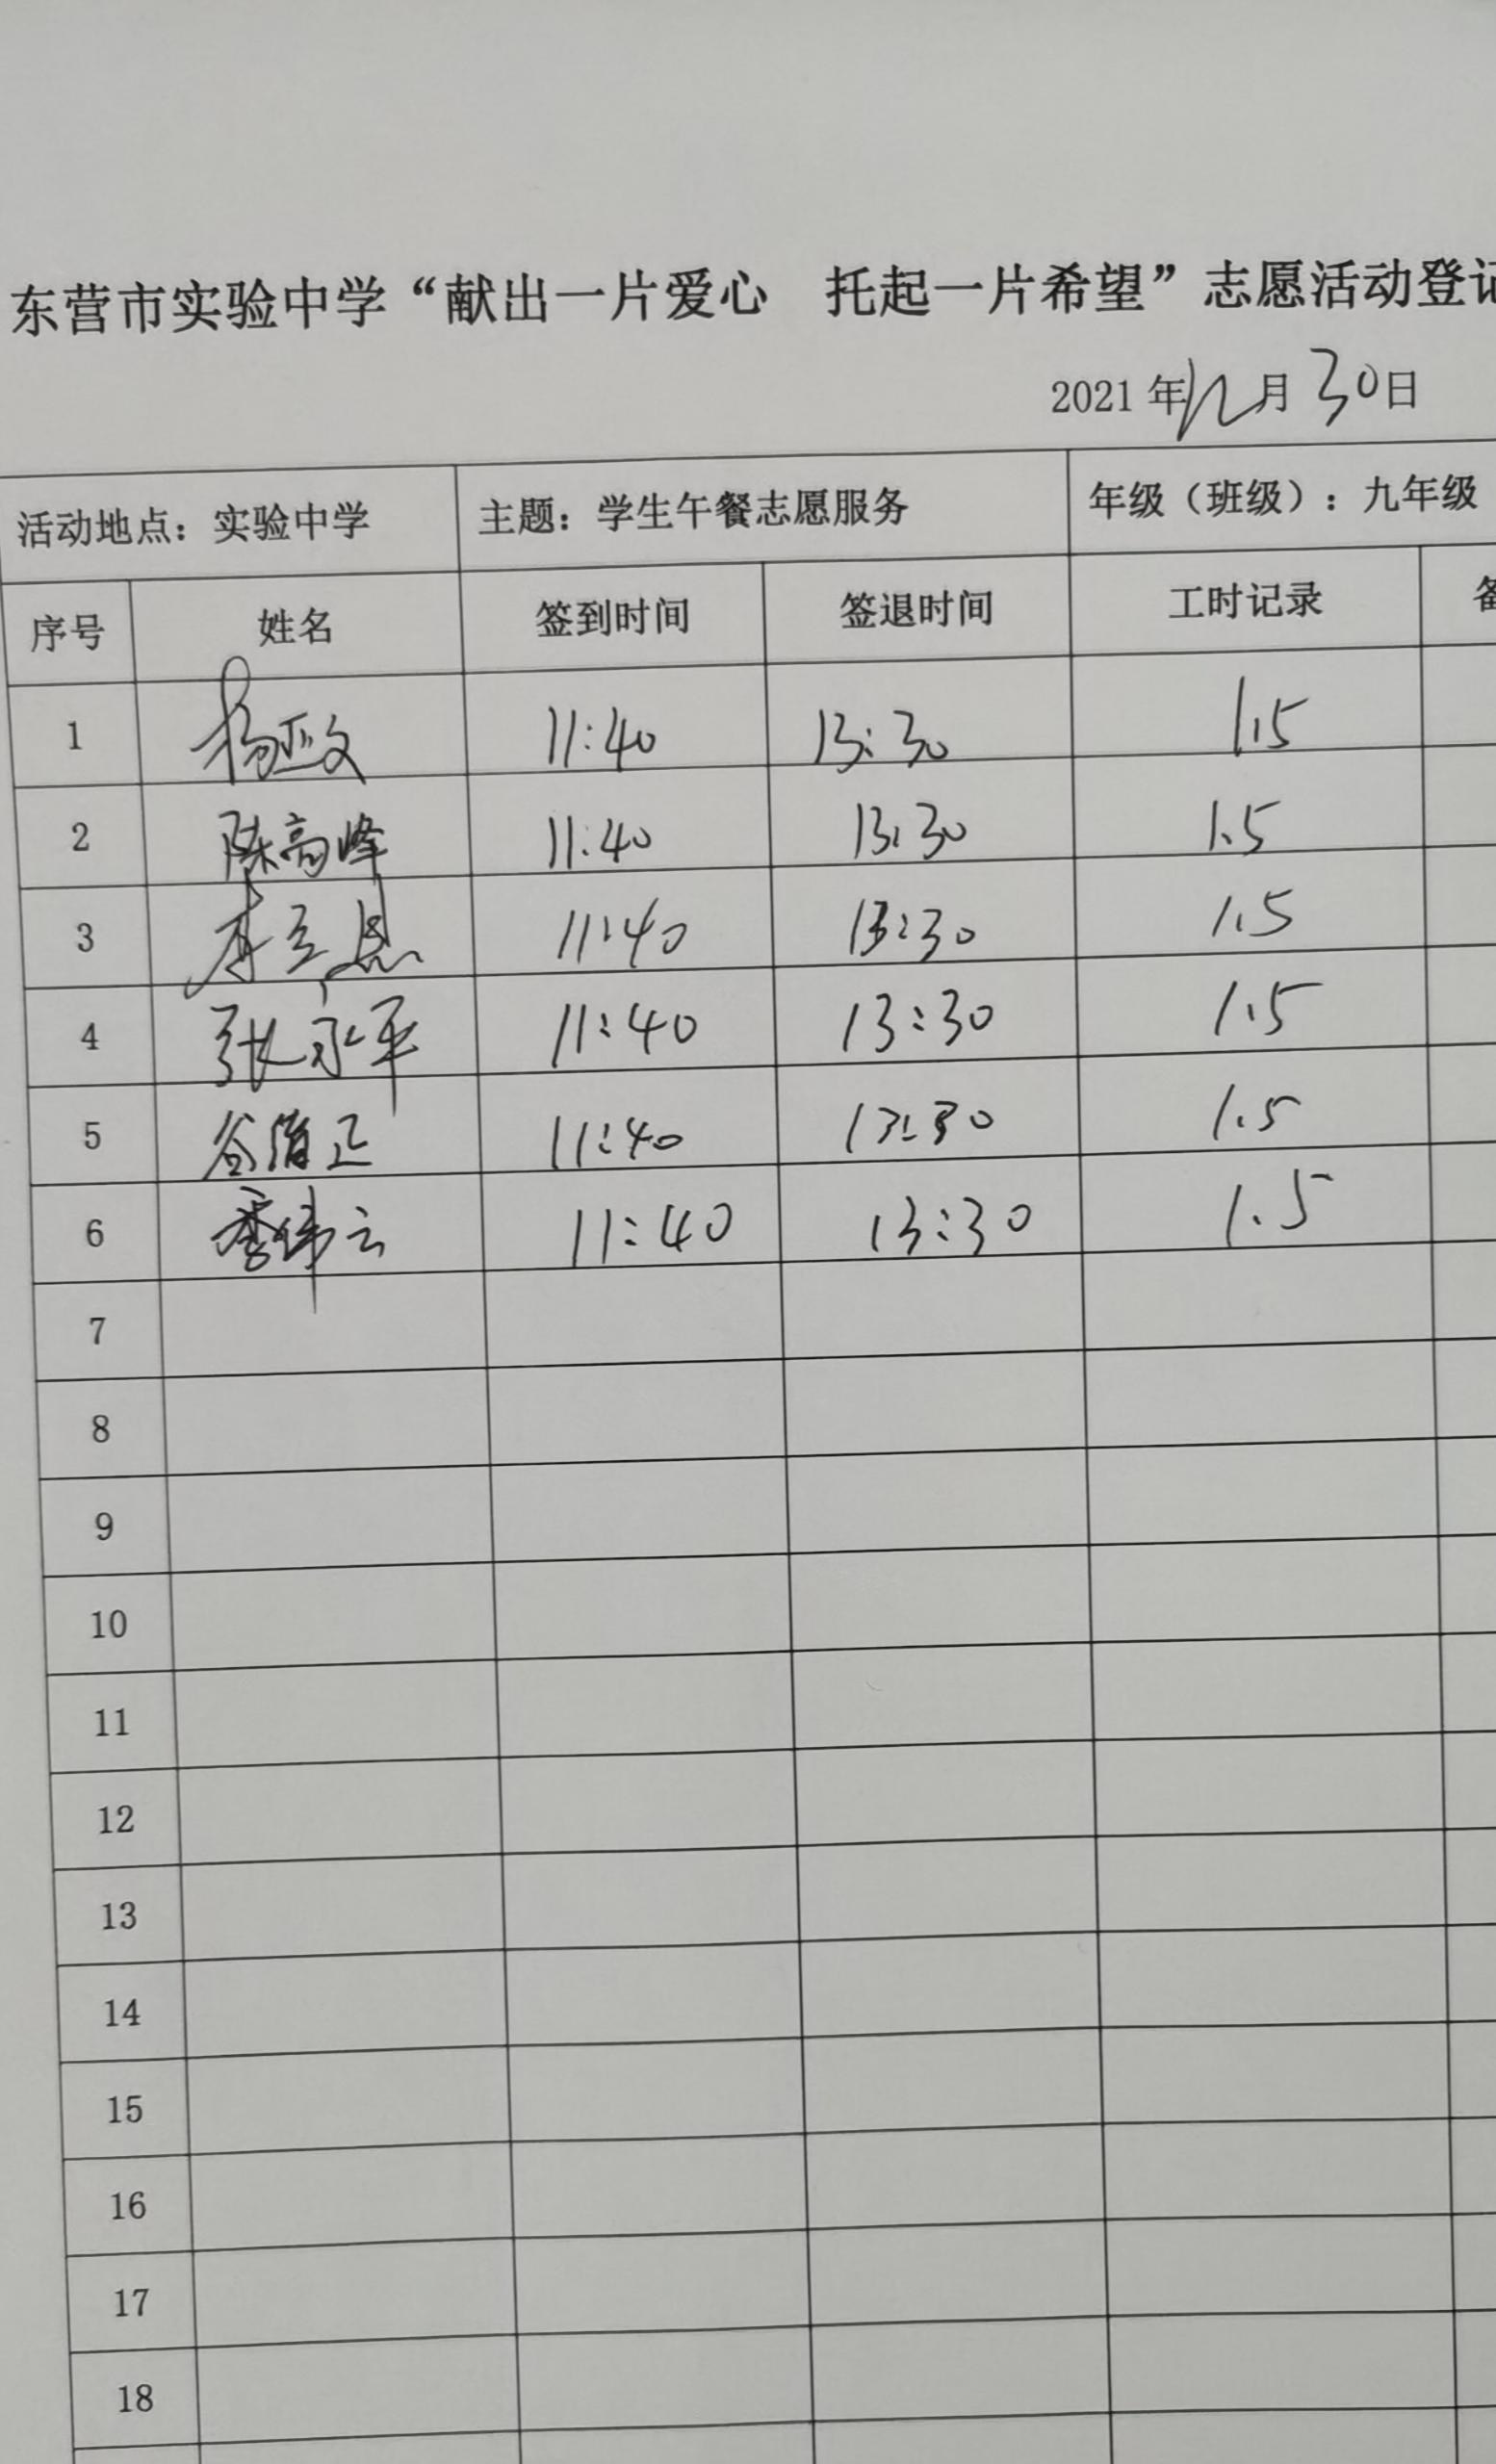 东营市实验中学“献出一片爱心 托起一片希望”志愿活动登记
2021 年 12 月 30 日
活动地点：实验中学 主题：学生午餐志愿服务 年级（班级）：九年级
序号 姓名 签到时间 签退时间 工时记录 备
1 杨亚文 11:40 13:30 1.5
2 陈高峰 11:40 13:30 1.5
3 李立忠 11:40 13:30 1.5
4 张永平 11:40 13:30 1.5
5 谷 正 11:40 13:30 1.5
6 季伟云 11:40 13:30 1.5
7
8
9
10
11
12
13
14
15
16
17
18